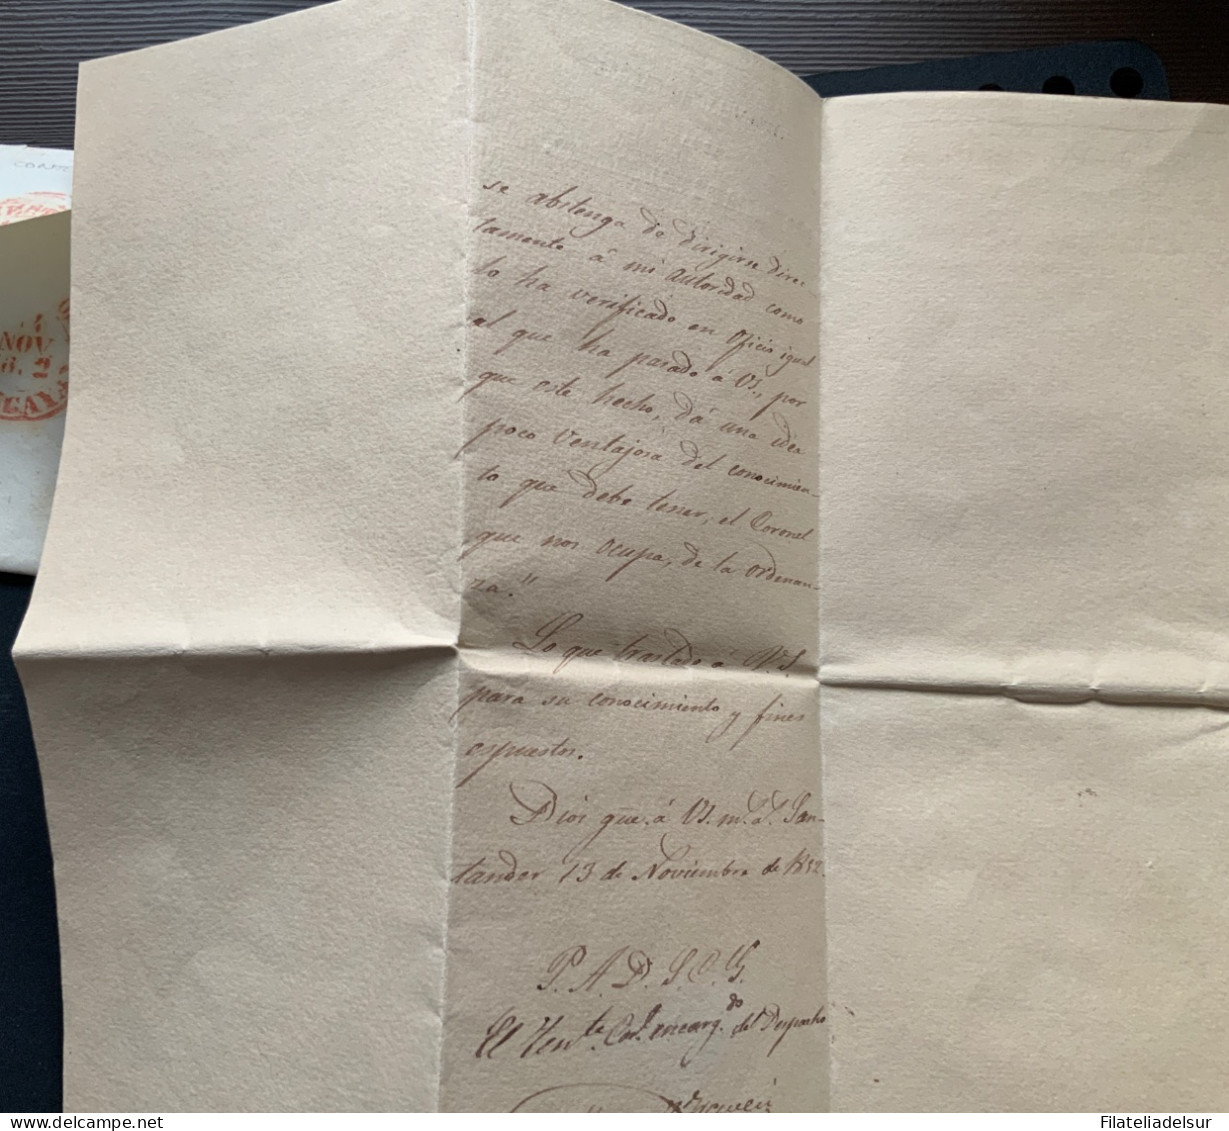 se abstenga de dirigirse direc-
tamente á mi autoridad como
lo ha verificado en oficio igual
al que ha pasado á VS., por
que este hecho, dá una idea
poco ventajosa del conocimien-
to que debe tener, el Coronel
que nos ocupa, de la ordenan-
za."
Lo que traslado á V.S.
para su conocimiento y fines
espuestos.
Dios gue. á VS. m.s a.s San-
tander 13 de Noviembre de 1852.
P. A. D. S. E. G.
El Tente. Corl. encargdo. del Despacho
NOV
Filateliadelsur.com